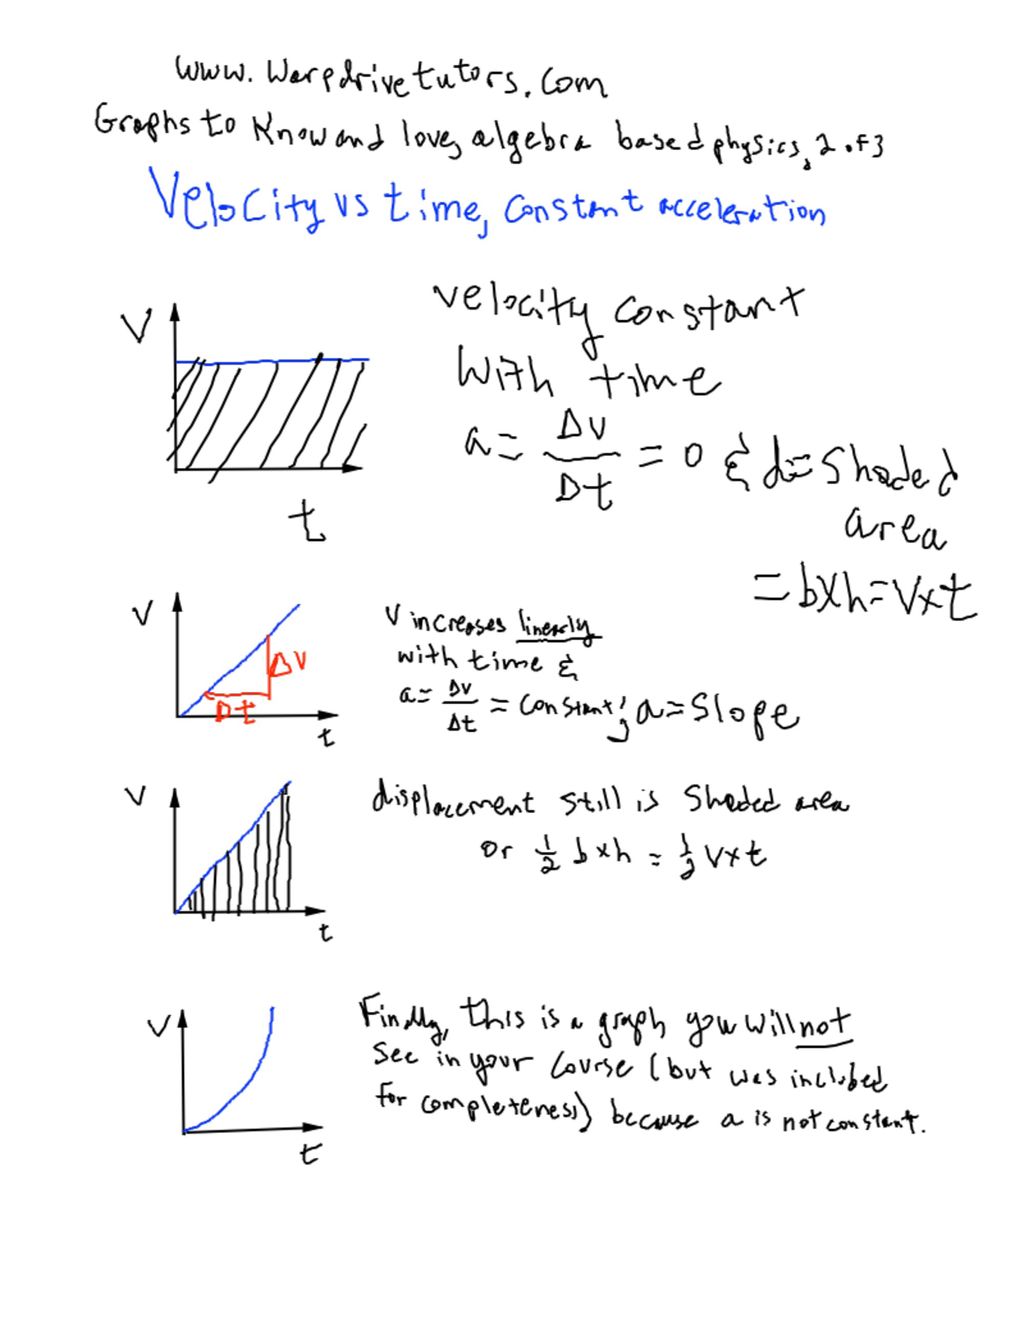 www.Warpdrivetutors.com
Graphs to Know and love, algebra based physics, 2 of 3
Velocity vs time, constant acceleration
V
t
velocity constant
With time
a = ΔV/Dt = 0 & d = Shaded
area
= bxh = Vxt
V
ΔV
Dt
t
V increases linearly
with time &
a = Δv/Δt = constant; a = Slope
V
t
displacement still is Shaded area
or ½ bxh = ½ Vxt
V
t
Finally, this is a graph you will not
See in your Course (but was included
for completeness) because a is not constant.